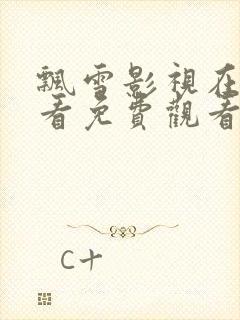 飄雪影視在
看免費觀看
C十